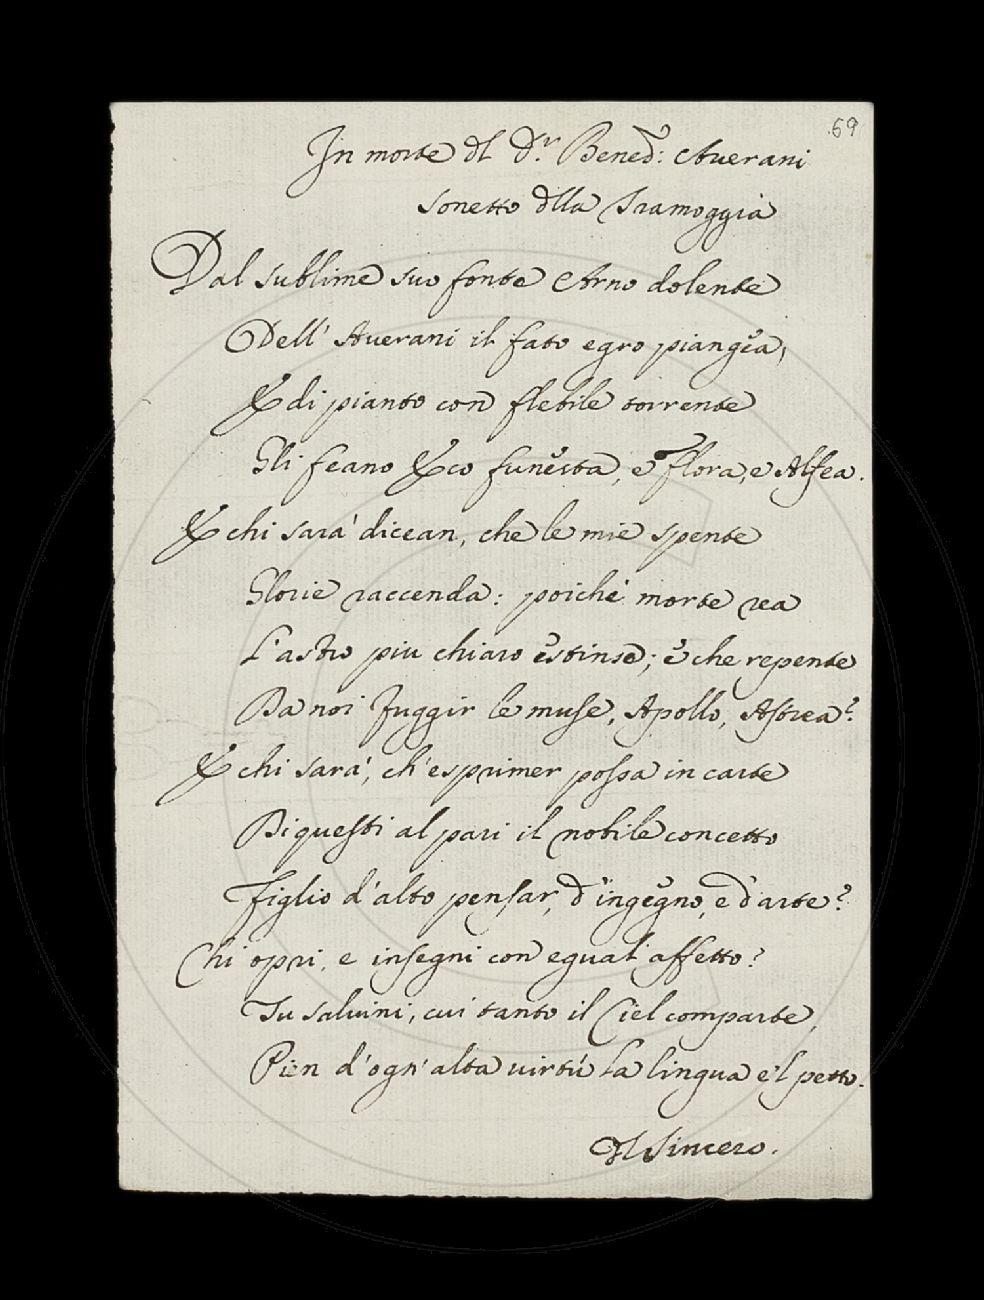 69
In morte dl Dr. Bened: Averani
sonetto dlla Sramoggia
Dal sublime suo fonte Arno dolente
Dell' Auerani il fato egro piangea;
E di pianto con flebile torrente
Gli feano Eco funesta, e Flora, e Alfea.
E chi sarà dicean, che le mie spente
Glorie raccenda: poiché morte rea
L'astro piu chiaro estinse; e che repente
Da noi fuggir le muse, Apollo, Astrea?
E chi sarà, ch'esprimer possa in carte
Di questi al pari il nobile concetto
Figlio d'alto pensar, d'ingegno, e d'arte?
Chi opri, e insegni con egual affetto?
Tu saluini, cui tanto il Ciel comparte,
Pien d'ogn'alta uirtú la lingua e'l petto.
Il Sincero.